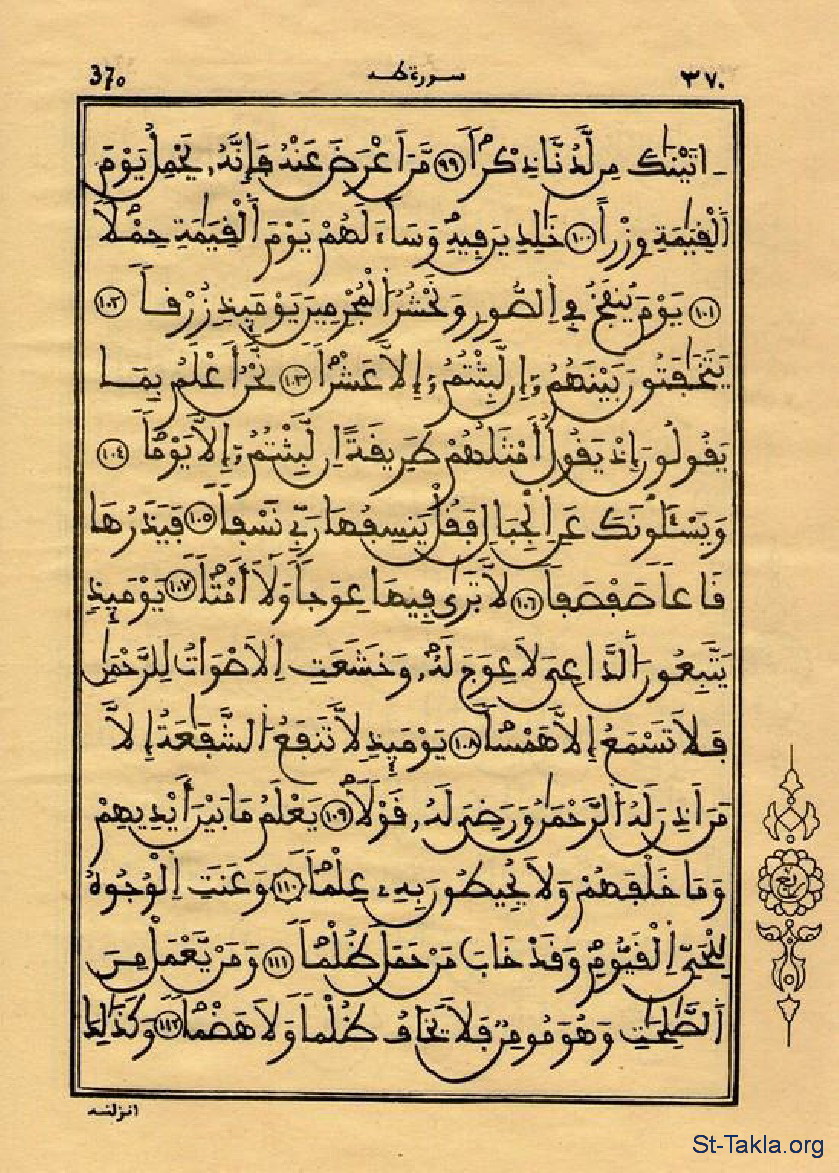 370
سورة طه
٣٧٠
ءَاتَيْنَٰكَ مِن لَّدُنَّا ذِكْراً ٩٩ مَّنَ اَعْرَضَ عَنْهُ فَإِنَّهُۥ يَحْمِلُ يَوْمَ
اَ۬لْقِيَٰمَةِ وِزْراً ١٠٠ خَٰلِدِينَ فِيهِ وَسَآءَ لَهُمْ يَوْمَ اَ۬لْقِيَٰمَةِ حِمْلاً
١٠١ يَوْمَ يُنفَخُ فِے اِ۬لصُّورِ وَنَحْشُرُ اُ۬لْمُجْرِمِينَ يَوْمَئِذٍ زُرْقاً ١٠٢
يَتَخَٰفَتُونَ بَيْنَهُمُۥٓ إِن لَّبِثْتُمُۥٓ إِلَّا عَشْراً ١٠٣ نَّحْنُ أَعْلَمُ بِمَا
يَقُولُونَ إِذْ يَقُولُ أَمْثَلُهُمْ طَرِيقَةً اِن لَّبِثْتُمُۥٓ إِلَّا يَوْماً ١٠٤
وَيَسْـَٔلُونَكَ عَنِ اِ۬لْجِبَالِ فَقُلْ يَنسِفُهَا رَبِّے نَسْفاً ١٠٥ فَيَذَرُهَا
قَاعاً صَفْصَفاً ١٠٦ لَّا تَرَىٰ فِيهَا عِوَجاً وَلَآ أَمْتاً ١٠٧ يَوْمَئِذٍ
يَتَّبِعُونَ اَ۬لدَّاعِيَ لَا عِوَجَ لَهُۥ وَخَشَعَتِ اِ۬لَاصْوَاتُ لِلرَّحْمَٰنِ
فَلَا تَسْمَعُ إِلَّا هَمْساً ١٠٨ يَوْمَئِذٍ لَّا تَنفَعُ اُ۬لشَّفَٰعَةُ إِلَّا
مَنَ اَذِنَ لَهُ اُ۬لرَّحْمَٰنُ وَرَضِيَ لَهُۥ قَوْلاً ١٠٩ يَعْلَمُ مَا بَيْنَ أَيْدِيهِمْ
وَمَا خَلْفَهُمْ وَلَا يُحِيطُونَ بِهِۦ عِلْماً ١١٠ وَعَنَتِ اِ۬لْوُجُوهُ
لِلْحَيِّ اِ۬لْقَيُّومِ وَقَدْ خَابَ مَنْ حَمَلَ ظُلْماً ١١١ وَمَنْ يَّعْمَلْ مِنَ
اَ۬لصَّٰلِحَٰتِ وَهُوَ مُومِنٌ فَلَا يَخَافُ ظُلْماً وَلَا هَضْماً ١١٢ وَكَذَٰلِكَ
انزلنه
St-Takla.org